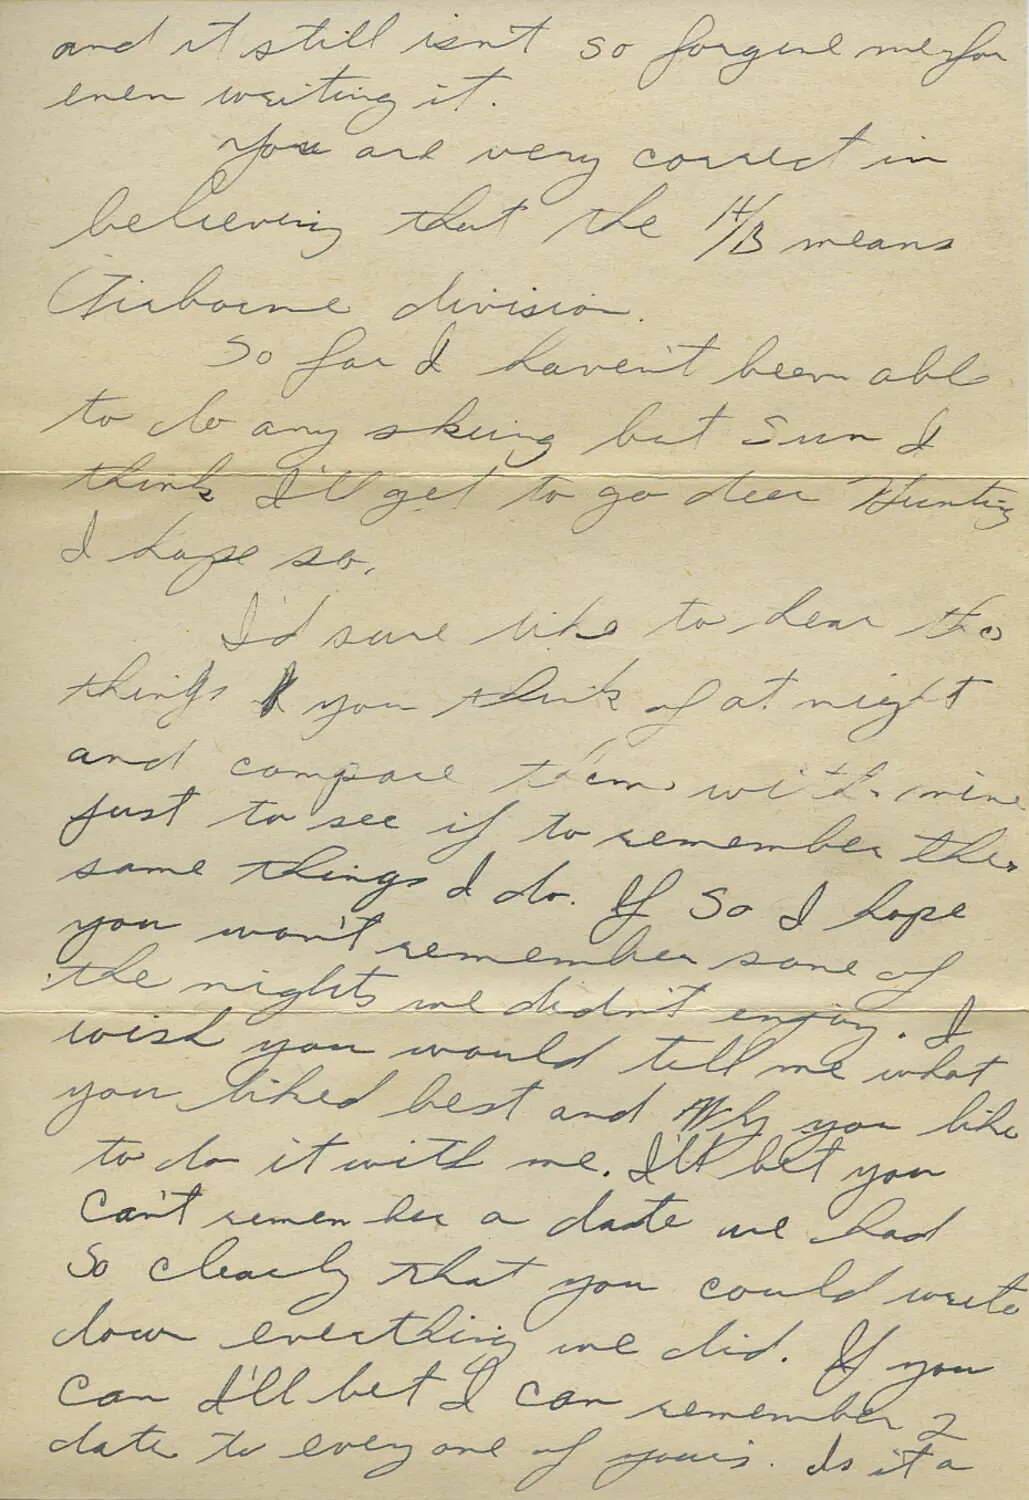 and it still isn't so forgive me for
even writing it.
You are very correct in
believing that the A/B means
Airborne division.
So far I haven't been able
to do any skiing but Sun I
think I'll get to go deer Hunting
I hope so.
I'd sure like to hear the
things you think of at night
and compare them with mine
just to see if to remember the
same things I do. If So I hope
you won't remember some of
the nights we didn't enjoy. I
wish you would tell me what
you liked best and Why you like
to do it with me. I'll bet you
can't remember a date we had
So clearly that you could write
down everthing we did. If you
can I'll bet I can remember 2
date to everyone of yours. Is it a